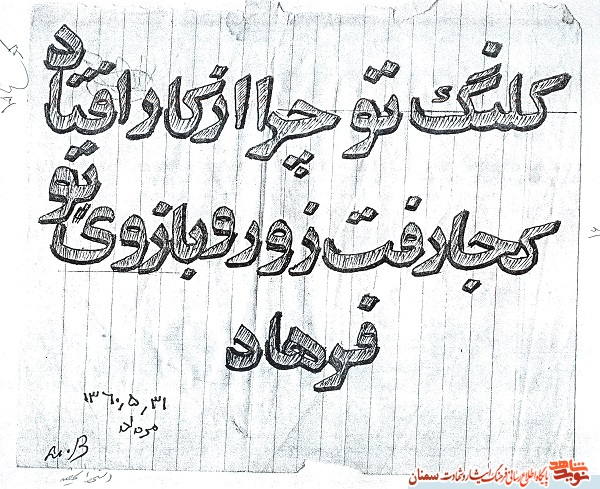 کلنگ تو چرا از کار افتاد
کجا رفت زور و بازوی تو
فرهاد
۱۳۶۰،۵،۳۱
مرداد
A.B
نوید شاهد
پایگاه اطلاع رسانی فرهنگ ایثار و شهادت سمنان